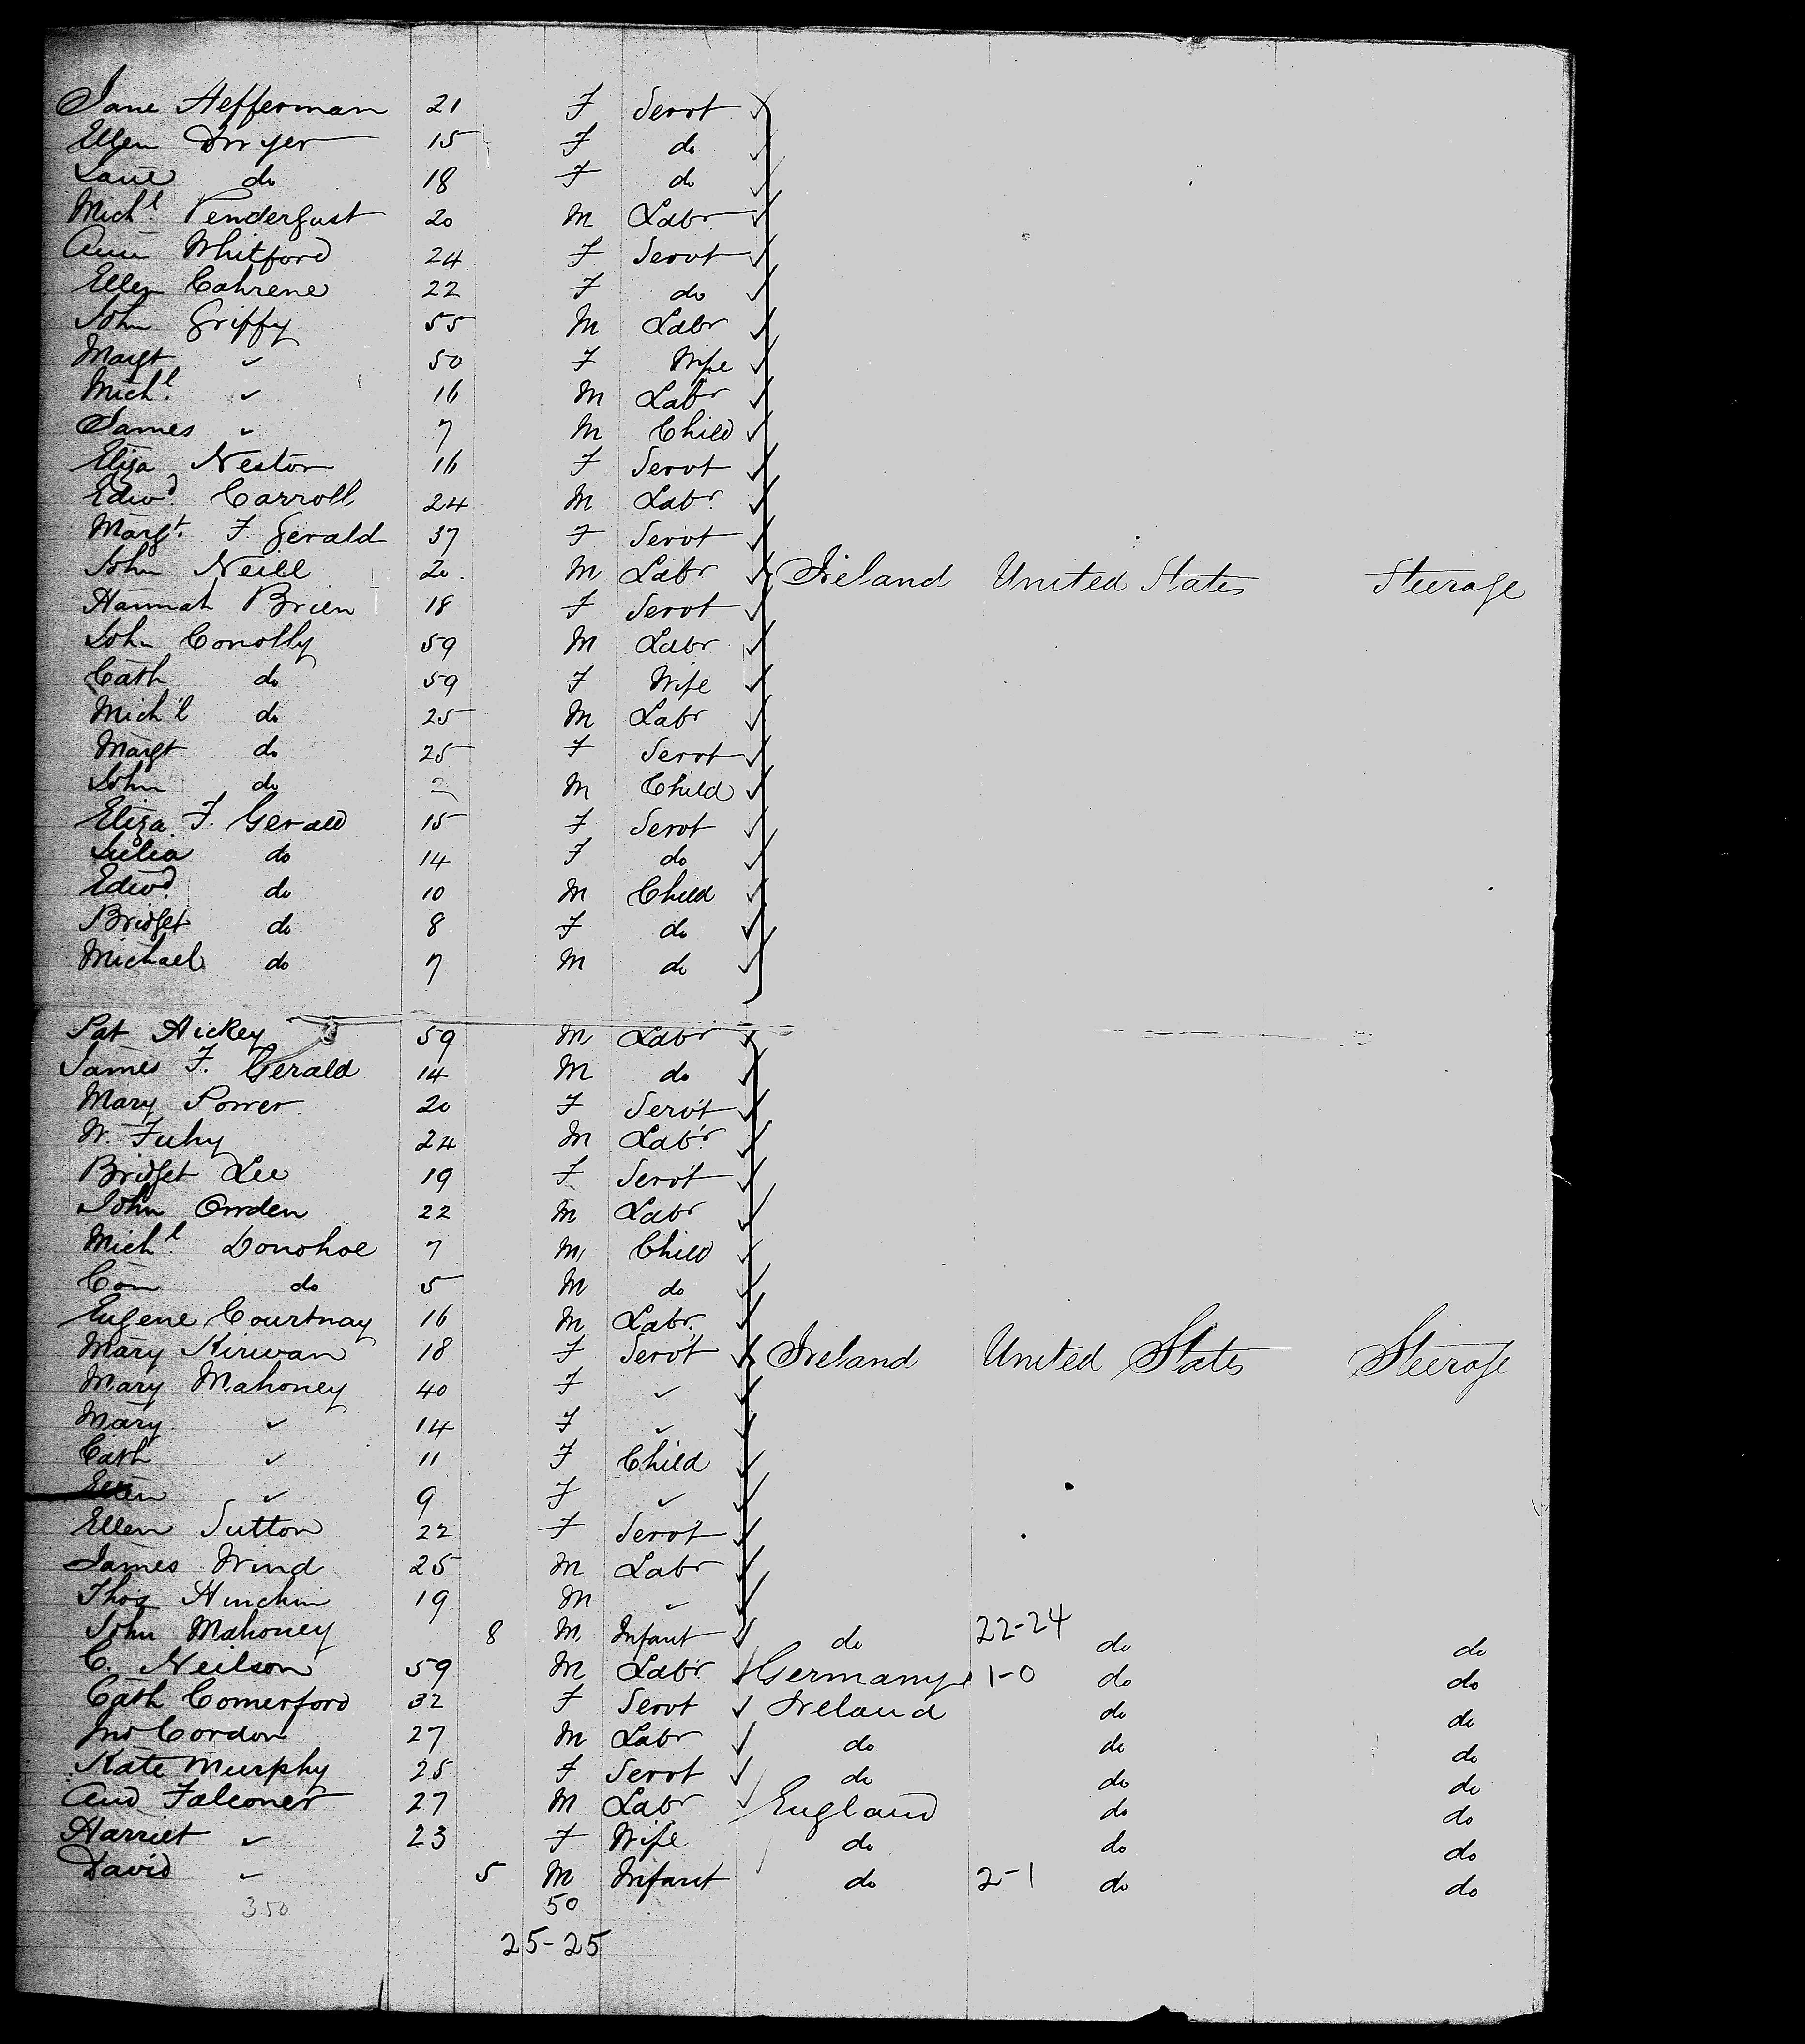 Jane Hefferman 21 F Servt ✓
Ellen Dwyer 15 F do ✓
Jane do 18 F do ✓
Mich.l Pendergust 20 M Labr ✓
Ann Whitford 24 F Servt ✓
Ellen Cahrene 22 F do ✓
John Griffy 55 M Labr ✓
Margt ✓ 50 F Wife ✓
Mich.l ✓ 16 M Labr ✓
James ✓ 7 M Child ✓
Eliza Nestor 16 F Servt ✓
Edwd. Carroll 24 M Labr. ✓
Margt. F. Gerald 37 F Servt ✓
John Neill 20. M Labr ✓ Ireland United States Steerage
Hannah Brien 18 F Servt ✓
John Conolly 59 M Labr ✓
Cath do 59 F Wife ✓
Mich'l do 25 M Labr ✓
Margt do 25 F Servt ✓
John do M Child ✓
Eliza. F. Gerald 15 F Servt ✓
Julia do 14 F do ✓
Edwd. do 10 M Child ✓
Bridget do 8 F do ✓
Michael do 7 M do ✓
Pat Hickey 59 M Labr ✓
James F. Gerald 14 M do ✓
Mary Power. 20 F Serv't ✓
W. Fuhy 24 M Lab'r ✓
Bridget Lee 19 F Serv't ✓
John Owden 22 M Labr ✓
Mich.l Donohoe 7 M Child ✓
Con do 5 M do ✓
Eugene Courtnay 16 M Labr. ✓
Mary Kirwan 18 F Serv't ✓ Ireland United States Steerage
Mary Mahoney 40 F ✓ ✓
Mary ✓ 14 F ✓ ✓
Cath ✓ 11 F Child ✓
Ellen ✓ 9 F ✓ ✓
Ellen Sutton 22 F Serv't ✓
James Wind 25 M Labr ✓
Thos Hinchin 19 M ✓ ✓
John Mahoney 8 M Infant ✓ do 22-24 do do
C. Neilson 59 M Lab'r ✓ Germany 1-0 do do
Cath Comerford 32 F Servt ✓ Ireland do do
Jno Cordon 27 M Labr ✓ do do do
Kate Murphy 25 F Servt ✓ do do do
And Falconer 27 M Labr ✓ England do do
Harriet ✓ 23 F Wife do do do
David ✓ 5 M Infant ✓ do 2-1 do do
350 50
25-25